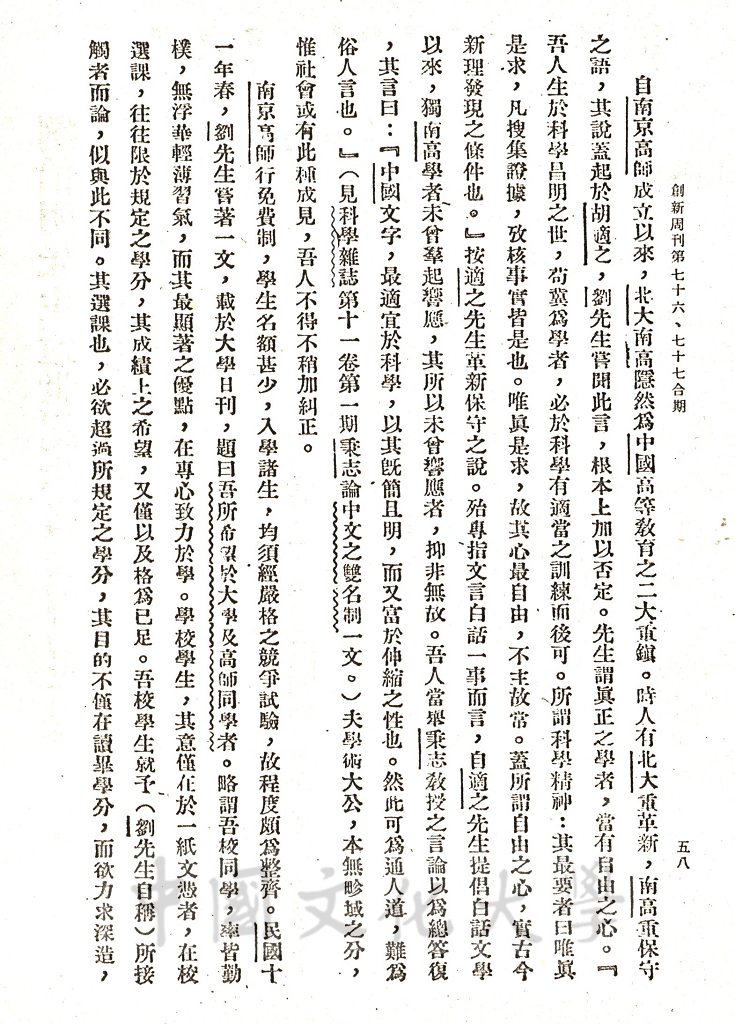 創新周刊第七十六、七十七合期
五八
自南京高師成立以來，北大南高隱然爲中國高等教育之二大重鎭。時人有北大重革新，南高重保守
之語，其說蓋起於胡適之，劉先生嘗聞此言，根本上加以否定。先生謂眞正之學者，當有自由之心。『
吾人生於科學昌明之世，苟冀爲學者，必於科學有適當之訓練而後可。所謂科學精神：其最要者曰唯眞
是求，凡搜集證據，攷核事實皆是也。唯眞是求，故其心最自由，不主故常。蓋所謂自由之心，實古今
新理發現之條件也。』按適之先生革新保守之說。殆專指文言白話一事而言，自適之先生提倡白話文學
以來，獨南高學者未曾羣起響應，其所以未曾響應者，抑非無故。吾人當舉秉志教授之言論以爲總答復
，其言曰：『中國文字，最適宜於科學，以其旣簡且明，而又富於伸縮之性也。然此可爲通人道，難爲
俗人言也。』（見科學雜誌第十一卷第一期秉志論中文之雙名制一文。）夫學術大公，本無畛域之分，
惟社會或有此種成見，吾人不得不稍加糾正。
南京高師行免費制，學生名額甚少，入學諸生，均須經嚴格之競爭試驗，故程度頗爲整齊。民國十
一年春，劉先生嘗著一文，載於大學日刊，題曰吾所希望於大學及高師同學者。略謂吾校同學，率皆勤
樸，無浮華輕薄習氣，而其最顯著之優點，在專心致力於學。學校學生，其意僅在於一紙文憑者，在校
選課，往往限於規定之學分，其成績上之希望，又僅以及格爲已足。吾校學生就予（劉先生自稱）所接
觸者而論，似與此不同。其選課也，必欲超過所規定之學分，其目的不僅在讀畢學分，而欲力求深造，
中國文化大學